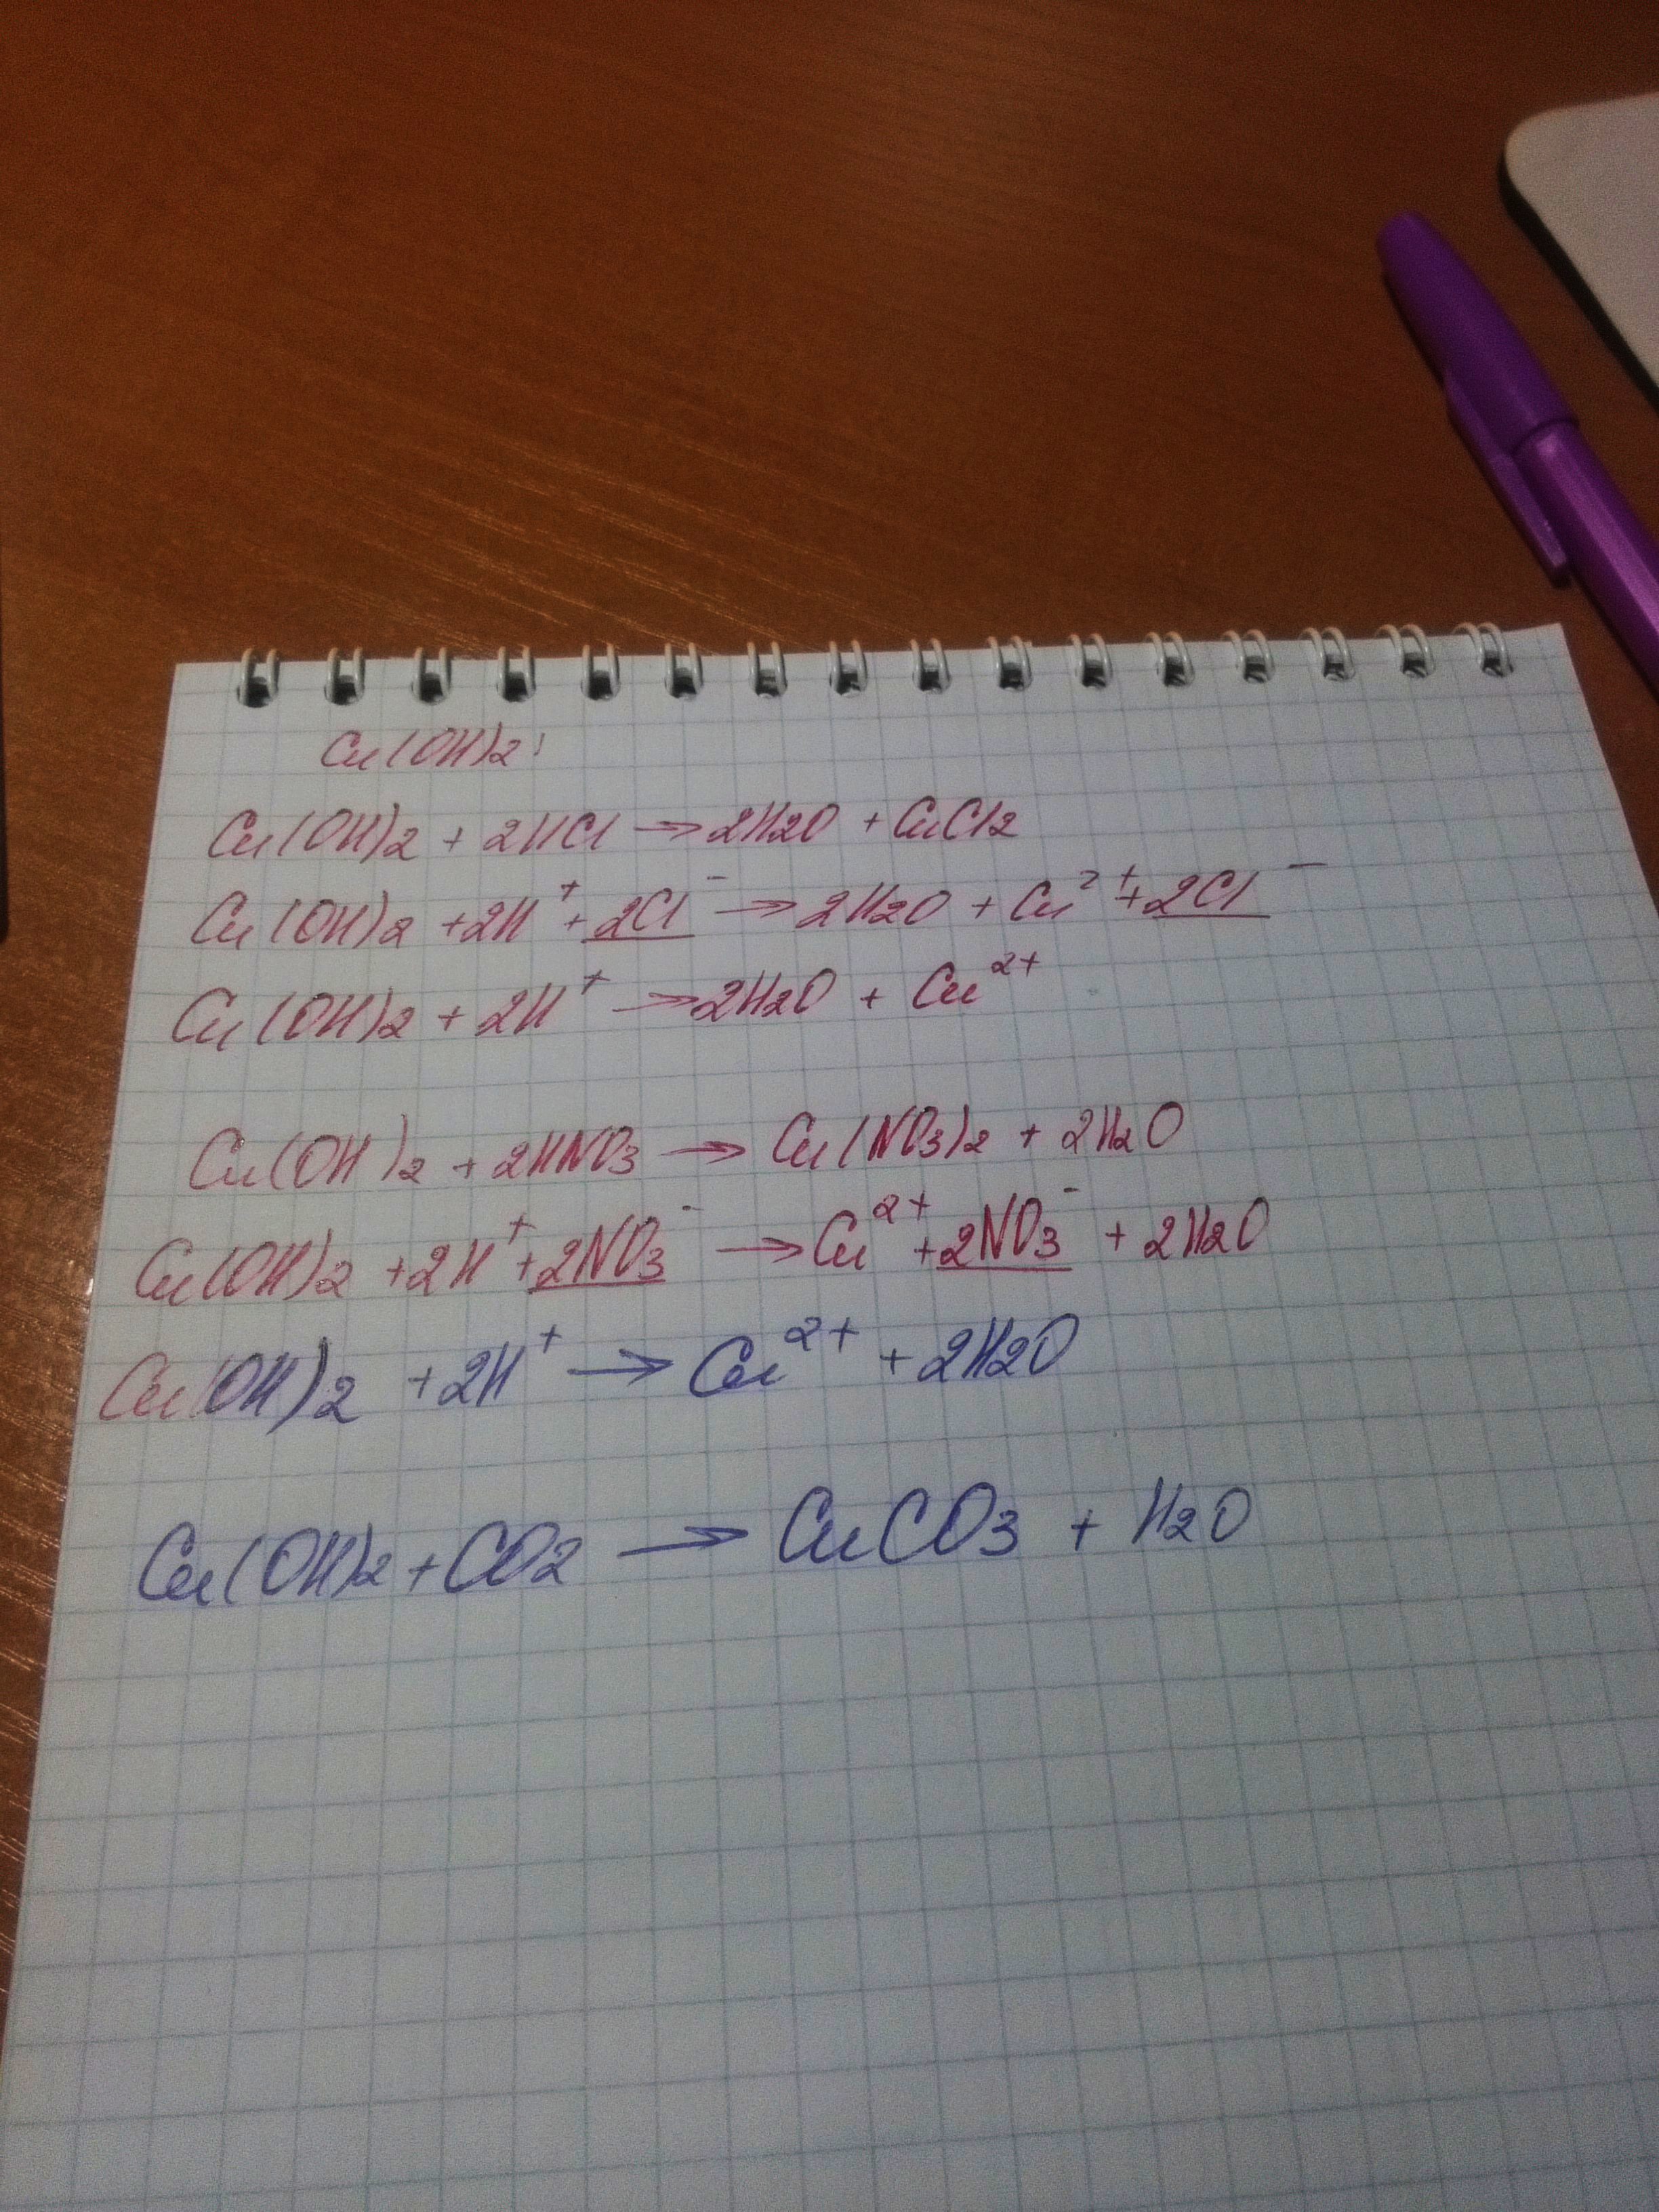 Cu(OH)2:
Cu(OH)2 + 2HCl → 2H2O + CuCl2
Cu(OH)2 + 2H⁺ + 2Cl⁻ → 2H2O + Cu²⁺ + 2Cl⁻
Cu(OH)2 + 2H⁺ → 2H2O + Cu²⁺
Cu(OH)2 + 2HNO3 → Cu(NO3)2 + 2H2O
Cu(OH)2 + 2H⁺ + 2NO3⁻ → Cu²⁺ + 2NO3⁻ + 2H2O
Cu(OH)2 + 2H⁺ → Cu²⁺ + 2H2O
Cu(OH)2 + CO2 → CuCO3 + H2O